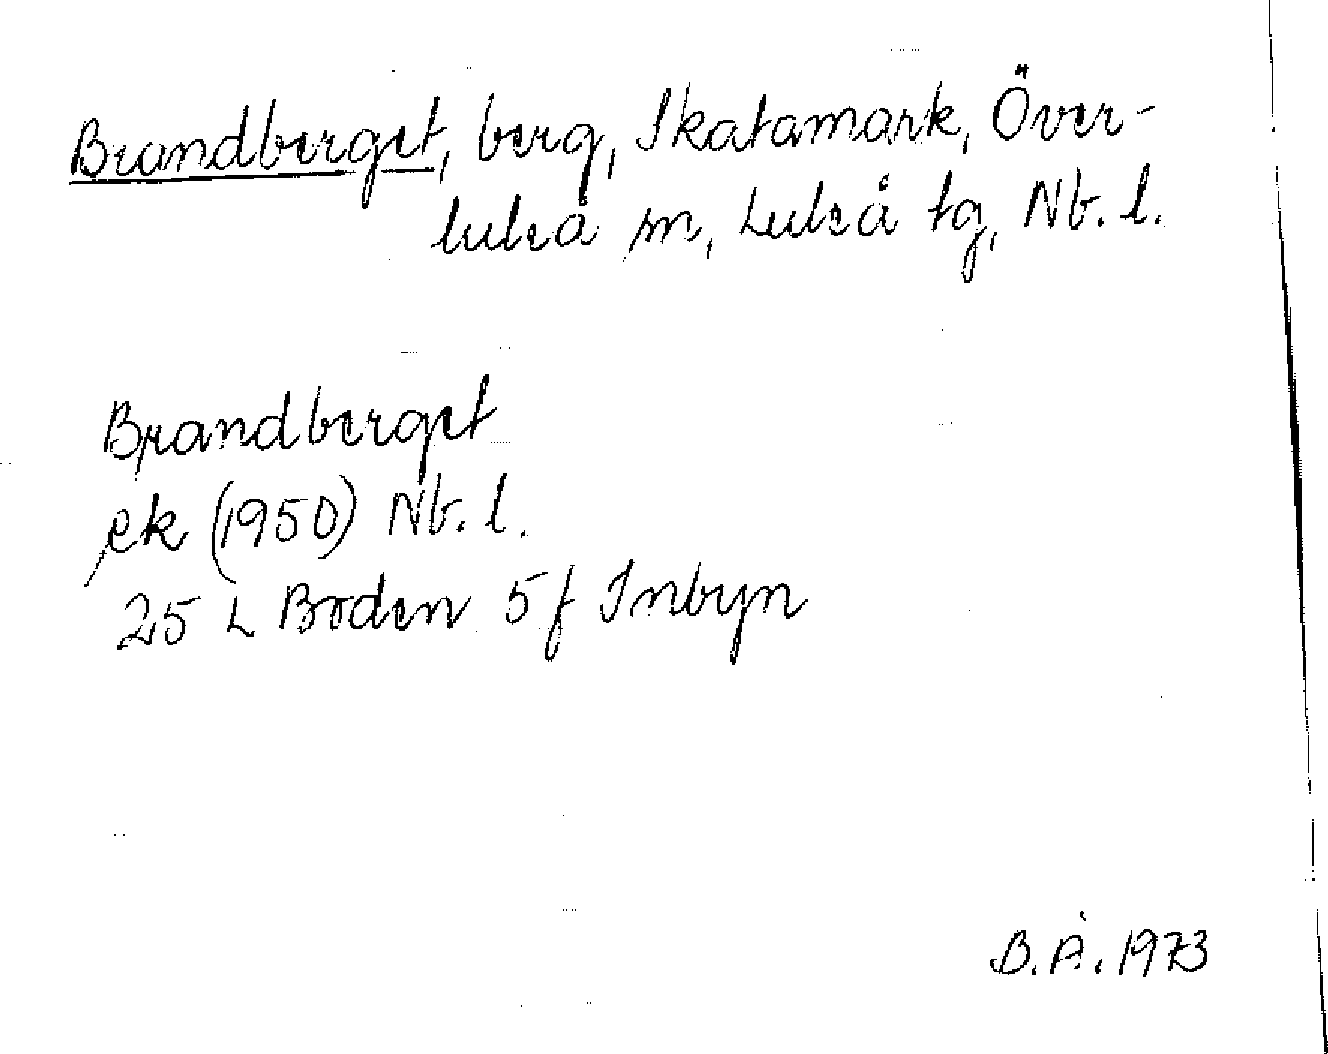 Brandberget, berg, Skatamark, Över-
luleå sn, Luleå tg, Nb. l.
Brandberget
ek (1950) Nb. l.
25 L Boden 5 f Inbyn
B. Å. 1973